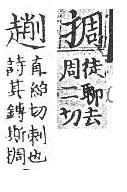 㨄
徒聊去
周二切
趙
直紹切刺也
詩其鎛斯㨄